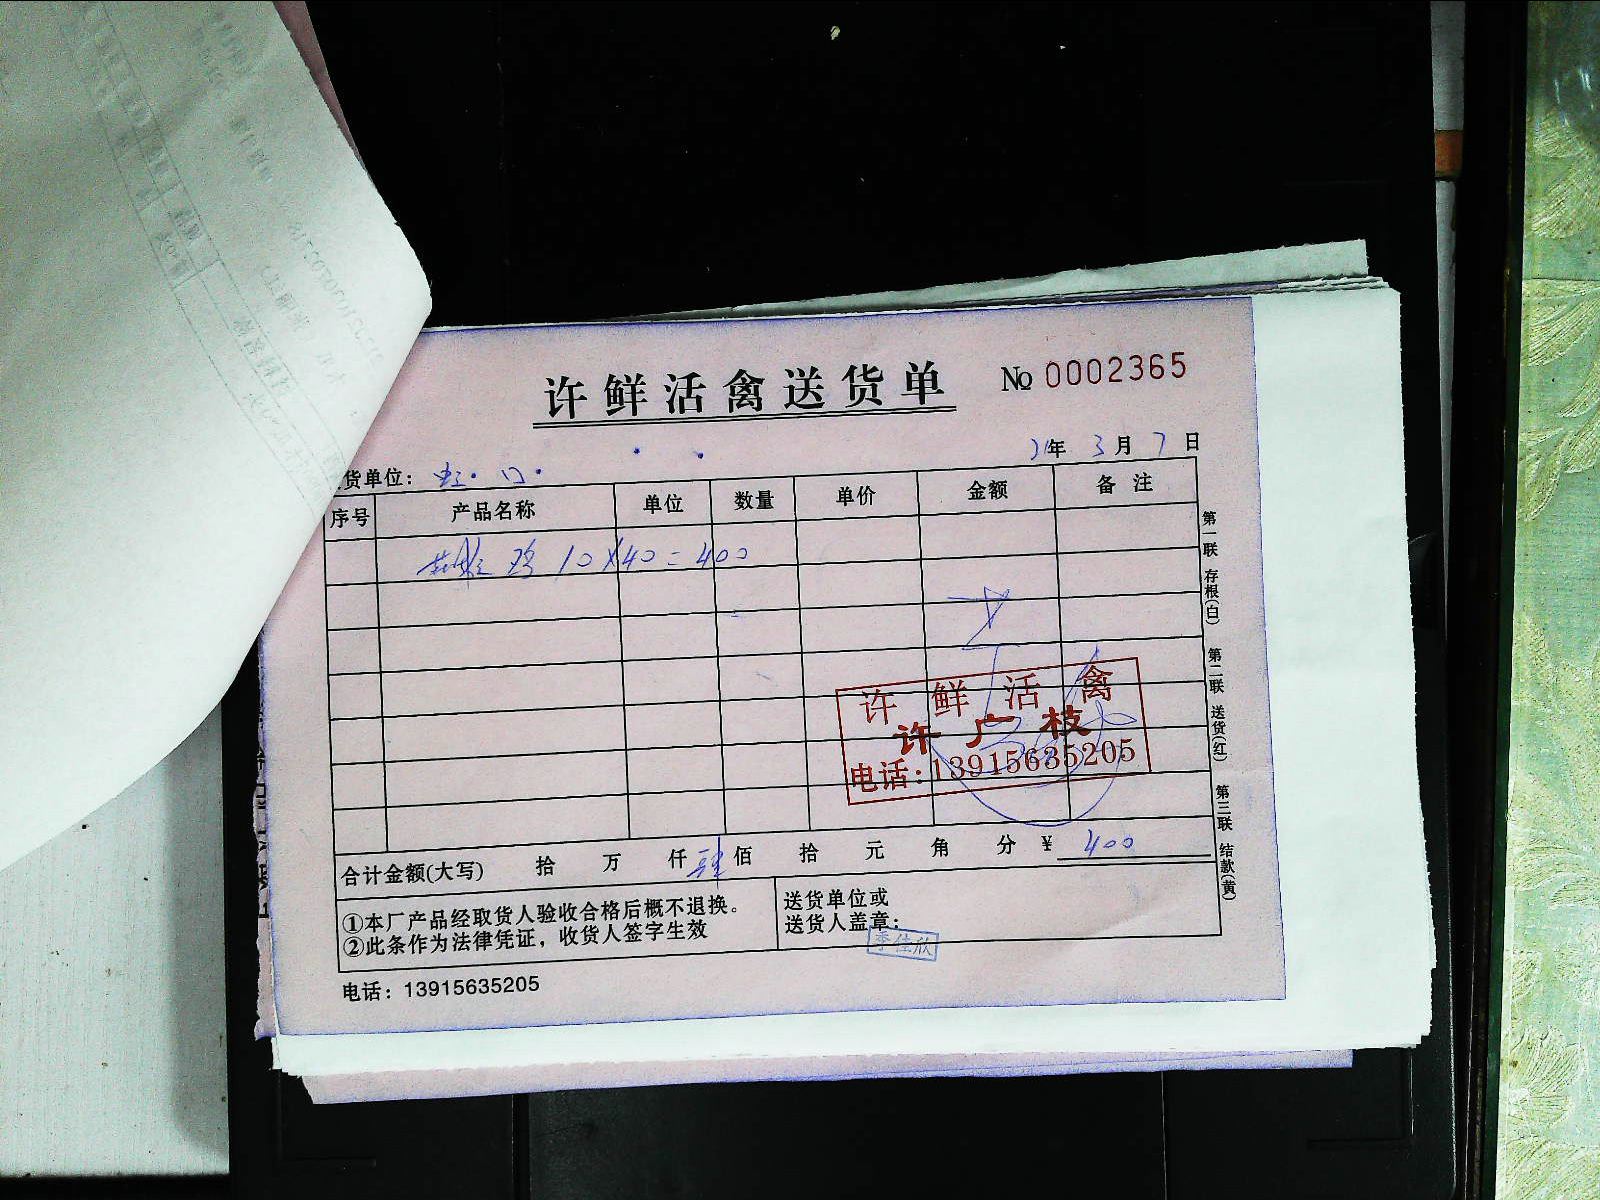 许鲜活禽送货单
No 0002365
21年 3月 7日
货单位：虹·口·
序号 产品名称 单位 数量 单价 金额 备注
鸡 10×40=400
许鲜活禽
许广枝
电话：13915635205
合计金额(大写) 拾 万 仟 肆佰 拾 元 角 分 ¥ 400
①本厂产品经取货人验收合格后概不退换。
②此条作为法律凭证，收货人签字生效
送货单位或
送货人盖章：
季佳欣
电话：13915635205
第一联 存根(白) 第二联 送货(红) 第三联 结款(黄)